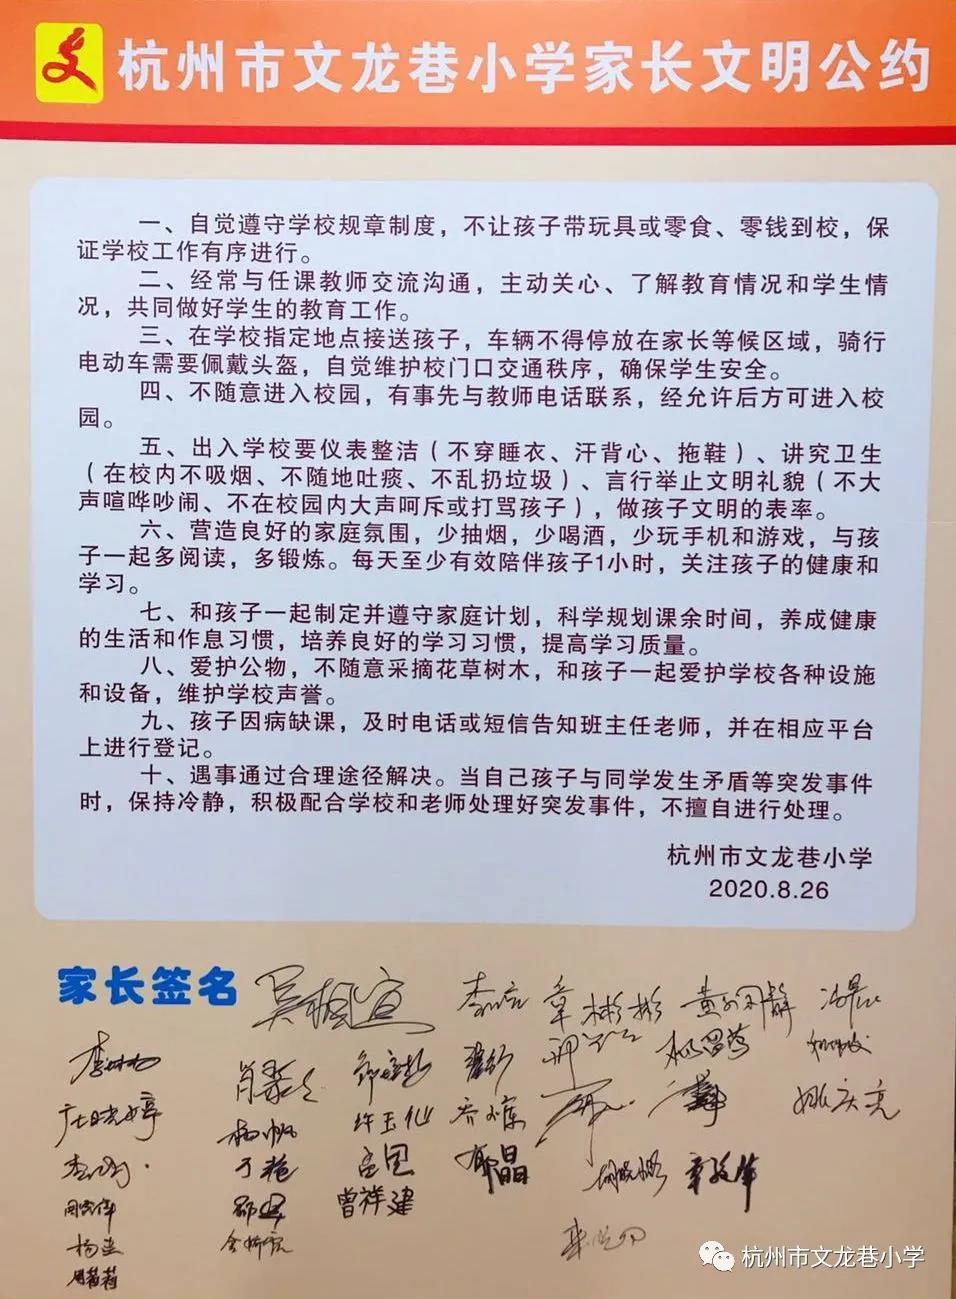 杭州市文龙巷小学家长文明公约
一、自觉遵守学校规章制度，不让孩子带玩具或零食、零钱到校，保
证学校工作有序进行。
二、经常与任课教师交流沟通，主动关心、了解教育情况和学生情
况，共同做好学生的教育工作。
三、在学校指定地点接送孩子，车辆不得停放在家长等候区域，骑行
电动车需要佩戴头盔，自觉维护校门口交通秩序，确保学生安全。
四、不随意进入校园，有事先与教师电话联系，经允许后方可进入校
园。
五、出入学校要仪表整洁（不穿睡衣、汗背心、拖鞋）、讲究卫生
（在校内不吸烟、不随地吐痰、不乱扔垃圾）、言行举止文明礼貌（不大
声喧哗吵闹、不在校园内大声呵斥或打骂孩子），做孩子文明的表率。
六、营造良好的家庭氛围，少抽烟，少喝酒，少玩手机和游戏，与孩
子一起多阅读，多锻炼。每天至少有效陪伴孩子1小时，关注孩子的健康和
学习。
七、和孩子一起制定并遵守家庭计划，科学规划课余时间，养成健康
的生活和作息习惯，培养良好的学习习惯，提高学习质量。
八、爱护公物，不随意采摘花草树木，和孩子一起爱护学校各种设施
和设备，维护学校声誉。
九、孩子因病缺课，及时电话或短信告知班主任老师，并在相应平台
上进行登记。
十、遇事通过合理途径解决。当自己孩子与同学发生矛盾等突发事件
时，保持冷静，积极配合学校和老师处理好突发事件，不擅自进行处理。
杭州市文龙巷小学
2020.8.26
家长签名
章彬彬
杨帆
许玉仙
郁晶
姚庆亮
曾祥建
杭州市文龙巷小学